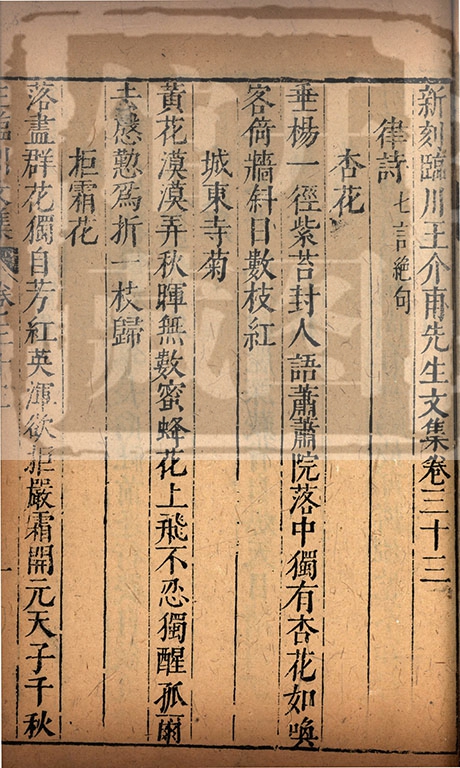 新刻臨川王介甫先生文集卷三十三
律詩 七言絶句
杏花
垂楊一徑紫苔封人語蕭蕭院落中獨有杏花如喚
客倚牆斜日數枝紅
城東寺菊
黃花漠漠弄秋暉無數蜜蜂花上飛不忍獨醒孤爾
去慇懃爲折一枝歸
拒霜花
落盡群花獨自芳紅英渾欲拒嚴霜開元天子千秋